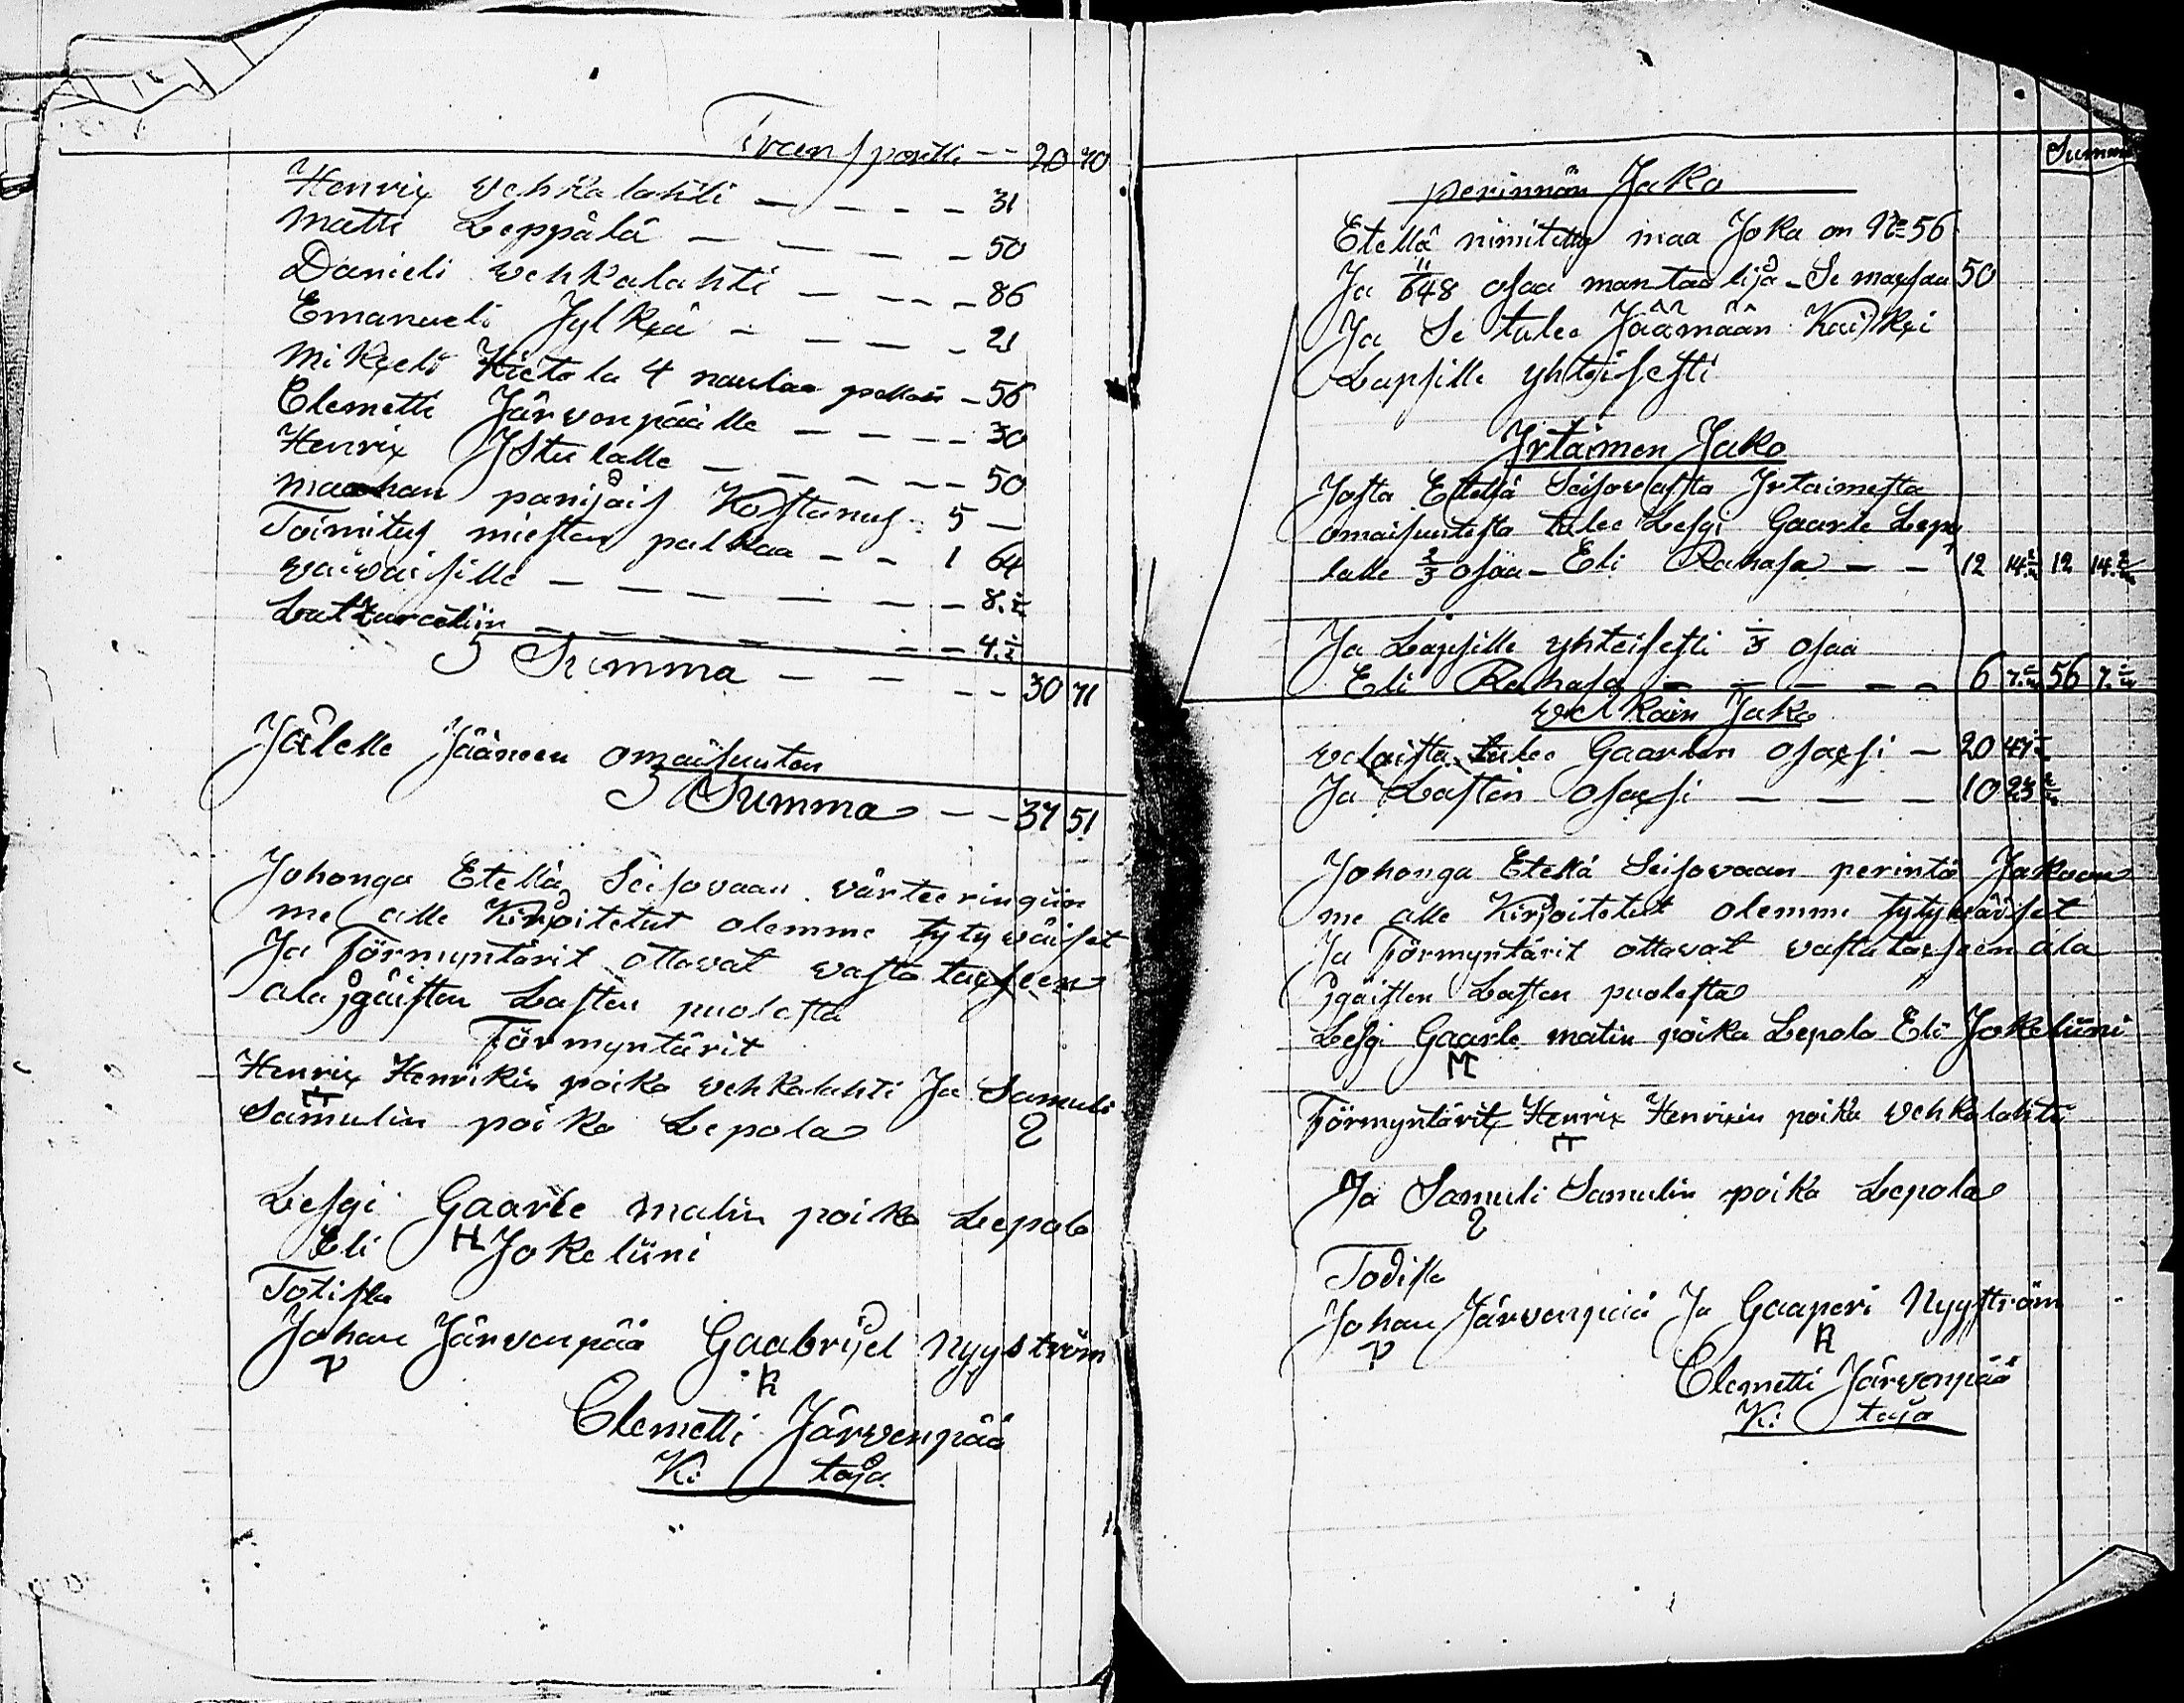 Transportti -- 20 70
Henrix Vehkalahti - - - - 31
Matti Leppälä - - - - 50
Danieli Vehkalahti - - - - 86
Emanueli Jylkxä - - - - 21
Mikxeli Hietola 4 naulaa - 56
Clemetti Järvenpäälle - - - - 30
Henrix Jstulalle - - - - - 50
maahan panijais Kostanus 5 -
Toimitus miesten palkkaa - - 1 64
vaivaisille - - - - - - 8.½
- - - - - - - 4.½
Summa - - - - 30 71
Jälelle Jääneen omaisuuten
Summa - - 37 51
Johonga Etellä Seisovaan värteeringiin
me alle Kirjoitetut olemme tytyväiset
Ja Förmyntärit ottavat vastataxseen
alaijgäisten Lasten puolesta
Förmyntärit
Henrix Henrikin poika Vehkalahti Ja Samuli
Samulin poika Lepola
Lesgi Gaarle matin poika Lepola
Eli Jokeliini
Totista
Johan Järvenpää Gaabrijel Nyyström
Clemetti Järvenpää
Ki taja
Summa
perinnön Jako
Etellä nimitetty maa Joka on No 56
Ja 11/648 osaa mantaalija - Se maxsaa 50
Ja Se tulee Jäämään Kaikxi
Lapsille yhteisesti
Jrtaimen Jako
Josta Etellä Seisovasta Jrtaimesta
omaisuutesta tulee Lesgi Gaarle Lepo
lalle 2/3 osaa - Eli Rahasa - - 12 14.⅔ 12 14.⅔
Ja Lapsille yhteisesti ⅓ osaa
Eli Rahasa - - - - - 6 7.⅓ 56 7.⅓
velkain Jako
velaista tulee Gaarlen osaxsi - 20 47⅓
Ja Lasten osaxsi - - - 10 23⅔
Johonga Etellä Seisovaan perintö Jakoon
me alle Kirjoitetut olemme tytyväiset
Ja Förmyntärit ottavat vastataxseen ala
jgäisten Lasten puolesta
Lesgi Gaarle matin poika Lepola Eli Jokeliini
Förmyntärit Henrix Henrixin poika Vehkalahti
Ja Samuli Samulin poika Lepola
Todista
Johan Järvenpää Ja Gaaperi Nyyström
Clemetti Järvenpää
Ki taja